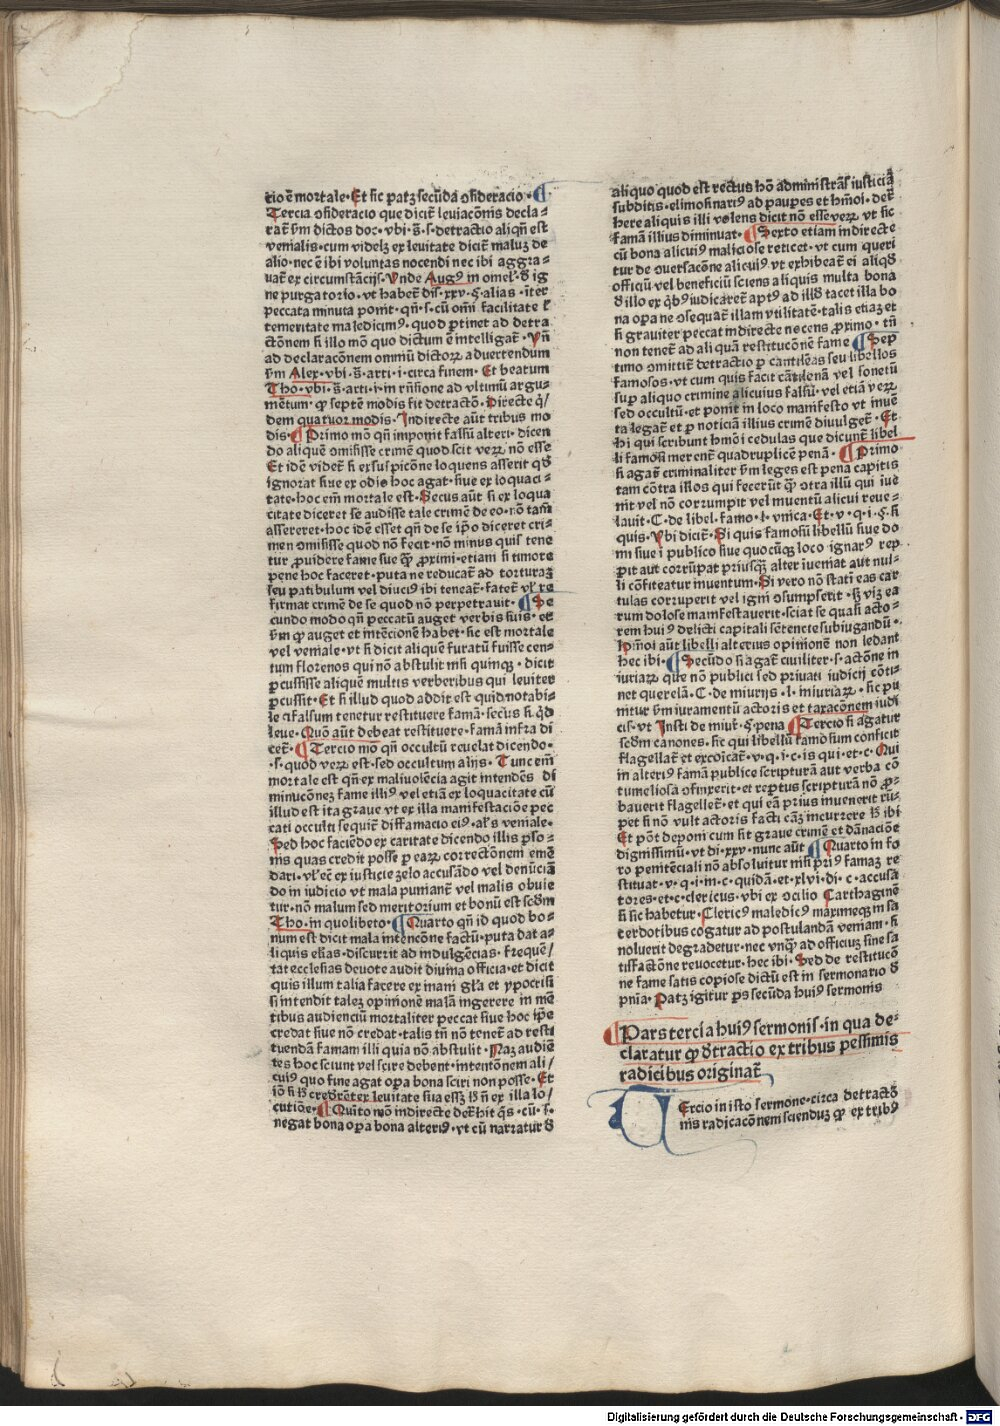 cio ē mortale. Et sic patꝫ secūda ꝯsideracio. ¶
Tercia ꝯsideracio que dicit̄ leuiacōnis decla⸗
rat̄ ẜm dictos doc. vbi. s̄. s. detractio aliqn̄ est
venialis. cum videlꝫ ex leuitate dicit̄ maluꝫ de
alio. nec ē ibi voluntas nocendi nec ibi aggra⸗
uat̄ ex circumstācijs. Vnde Augꝰ in omel̄. ð ig
ne purgatorio. vt habet̄ dis. xxv. §. alias. īter
peccata minuta ponit. qn̄. s. cū om̄i facilitate ł
temeritate maledicimꝰ. quod ꝑtinet ad detra
ctōnem si illo mō quo dictum ē intelligat̄. Vn̄
ad declaracōnem omniū dictoꝝ aduertendum
ẜm Alex. vbi. s̄. arti. i. circa finem. Et beatum
Tho. vbi. s̄. arti. i. in rn̄sione ad vltimū argu⸗
mētum. ꝙ septē modis fit detractō. Directe q̄/
dem quatuor modis. Indirecte aūt tribus mo
dis. ¶ Primo mō qn̄ imponit falsū alteri. dicen
do aliquē omisisse crimē quod scit veꝝ nō esse
Et idē videt̄ si ex suspicōne loquens asserit qð
ignorat siue ex odio hoc agat. siue ex loquaci⸗
tate. hoc em̄ mortale est. Secus aūt si ex loqua
citate diceret se audisse tale crimē de eo. nō tam̄
assereret. hoc idē esset qn̄ de se ip̄o diceret cri⸗
men omisisse quod nō fecit. nō minus quis tene
tur ꝓuidere fame sue qꝫ̄ ꝓximi. etiam si timore
pene hoc faceret. puta ne reducat̄ ad torturaꝫ
seu patibulum vel diuciꝰ ibi teneat̄. fatet̄ vł re
firmat crimē de se quod nō perpetrauit. ¶ Se
cundo modo qn̄ peccatū auget verbis suis. et
ẜm ꝙ auget et intēcionē habet. sic est mortale
vel veniale. vt si dicit aliquē furatū fuisse cen⸗
tum florenos qui nō abstulit nisi quinqꝫ. dicit
ꝑcussisse aliquē multis verberibus qui leuiter
ꝑcussit. Et si illud quod addit est quid notabi⸗
le ⁊ falsum tenetur restituere famā. secus si qð
leue. Quō aūt debeat restituere famā infra di
cet̄. ¶ Tercio mō qn̄ occultū reuelat dicendo.
s. quod veꝝ est. sed occultum alijs. Tunc em̄
mortale est qn̄ ex maliuolēcia agit intendēs di
minucōneꝫ fame illiꝰ vel etiā ex loquacitate cū
illud est ita graue vt ex illa manifestacōe pec
cati occulti sequit̄ diffamacio eiꝰ. ał̄s veniale.
Sed hoc faciēdo ex caritate dicendo illis ꝑso⸗
nis quas credit posse ꝑ eaꝝ correctōnem emē
dari. vł̄ eē ex iusticie zelo accusādo vel denūciā
do in iudicio vt mala punianť vel malis obuie
tur. nō malum sed meritorium et bonū est scd̄m
Tho. in quolibeto. ¶ Quarto qn̄ id quod bo⸗
num est dicit mala intencōne factū. puta dat a⸗
liquis elīas. discurrit ad indulgēcias. frequē/
tat ecclesias deuote audit diuina officia. et dicit
quis illum talia facere ex inani gl̄a et ypocrisi
si intendit taleꝫ opinionē malā ingerere in mē
tibus audienciū mortaliter peccat siue hoc ip̄e
credat siue nō credat. talis tn̄ nō tenet̄ ad resti
tuendā famam illi quia nō abstulit. Naꝫ audiē
tes hoc sciunt vel scire debent. intentōnem ali/
cuiꝰ quo fine agat oꝑa bona sciri non posse. Et
iō si h̄ crederēt ex leuitate sua esꝫ h̄ n̄ ex illa lo/
cutiōe. ¶ Quīto mō indirecte det̄hit qͥs. cū. s.
negat bona oꝑa bona alteriꝰ. vt cū narratur ð
aliquo quod est rectus hō administrās iusticiā
subditis. elimosinariꝰ ad pauꝑes et hm̄oi. det̄
here aliquis illi volens dicit nō esse veꝝ vt sic
famā illius diminuat. ¶ Sexto etiam indirecte
cū bona alicuiꝰ maliciose reticet. vt cum queri
tur de ꝯuersacōne alicuiꝰ vt exhibeat̄ ei aliqð
officiū vel beneficiū sciens aliquis multa bona
ð illo ex qͥbꝰ iudicaret̄ aptꝰ ad illð tacet illa bo
na oꝑa ne ꝯsequat̄ illam vtilitatē. talis etiaꝫ et
si grauiter peccat indirecte nocens ꝓximo. tn̄
non tenet̄ ad aliquā restitucōnē fame ¶ Sep
timo omittit̄ detractio ꝑ cantilēas seu libellos
famosos. vt cum quis facit cātilenā vel sonetū
suꝑ aliquo crimine alicuius falsū. vel etiā veꝝ
sed occultū. et ponit in loco manifesto vt inuē
ta legat̄ et ꝑ noticiā illius crimē diuulget̄. Et
hi qui scribunt hmōi cedulas que dicunt̄ libel
li famosi merent̄ quadruplicē penā. ¶ Primo
si agat̄ criminaliter ẜm leges est pena capitis
tam cōtra illos qui fecerūt qꝫ̄ otra illū qui iue
nit vel nō corrumpit vel inuentū alicui reue⸗
lauit. C. de libel. famo. l. vnica. Et. v. q. i. §. si
quis. Vbi dicit̄. Si quis famosū libellū siue do
mi siue ī publico siue quocūqꝫ loco ignarꝰ rep
ꝑit aut corrūpat priusqꝫ̄ alter iueniat aut nul⸗
li cōfiteatur inuentum. Si vero nō stati eas car
tulas corruperit vel igni ꝯsumpserit. sꝫ viꝫ ea
rum dolose manifestauerit. sciat se quasi acto⸗
rem huiꝰ delicti capitali sētencie subiugandū.
Hm̄oi aūt libelli alterius opinionē non ledant
hec ibi. ¶ Secūdo si agat̄ ciuiliter. s. actōne in
iuriaꝝ que nō publici sed priuati iudicij cōti⸗
net querelā. C. de iniurijs. l. iniuriaꝝ. sic pu
nitur ẜm iuramentū actoris et taxacōnem iudi
cis. vt Insti de iniur̄. §. pena ¶ Tercio si agatur
scd̄m canones. sic qui libellū famosum conficit
flagellat̄ et excōicat̄. v. q. i. c. is qui. et. c. Qui
in alteriꝰ famā publice scripturā aut verba cō
tumeliosa ꝯfinxerit. et reꝑtus scripturā nō ꝓ⸗
bauerit flagellet̄. et qui eā prius inuenerit rū⸗
pet si nō vult actoris facti cāꝫ incurrere h̄ ibi
Et pōt deponi cum sit graue crimē et dānaciōe
dignissimū. vt di. xxv. nunc aūt ¶ Quarto in fo
ro penitēciali nō absoluitur nisi priꝰ famaꝫ re
stituat. v. q. i. in c. quidā. et. xlvi. di. c. accusa
tores. et. c. clericus. vbi ex ꝯcilio Carthaginē
si sic habetur. Clericꝰ maledicꝰ maximeqꝫ in sa
cerdotibus cogatur ad postulandā veniam. si
noluerit degradetur. nec vnqꝫ̄ ad officiuꝫ sine sa
tisfactōne reuocetur. hec ibi. Sed de restitucō
ne fame satis copiose dictū est in sermonario ð
pn̄ia. Patꝫ igitur ꝑs secūda huiꝰ sermonis
¶ Pars tercia huiꝰ sermonis. in qua de⸗
claratur ꝙ ðtractio ex tribus pessimis
radicibus originat̄.
Tercio in isto sermone. circa detractō
nis radicacōnem sciendūꝫ ꝙ ex tribꝰ
Digitalisierung gefördert durch die Deutsche Forschungsgemeinschaft - DFG